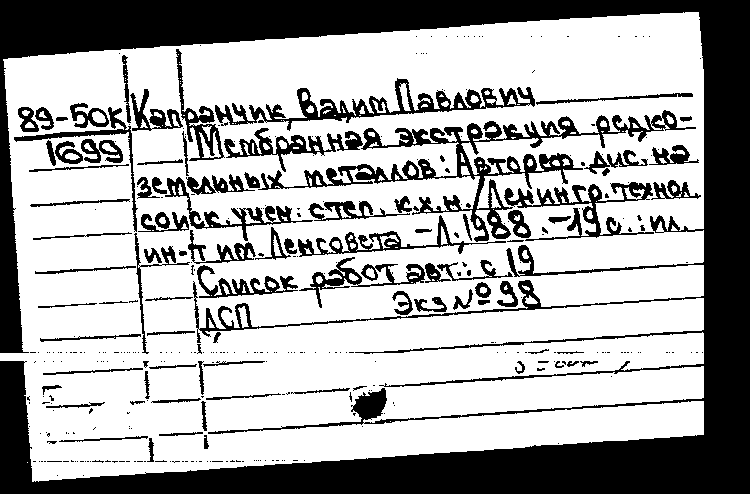 89-50К Капранчик, Вадим Павлович
1699 Мембранная экстракция редко-
земельных металлов: Автореф. дис. на
соиск. учен. степ. к.х.н. / Ленингр. технол.
ин-т им. Ленсовета. - Л., 1988. - 19 с. : ил.
Список работ авт.: с 19
ДСП Экз № 98